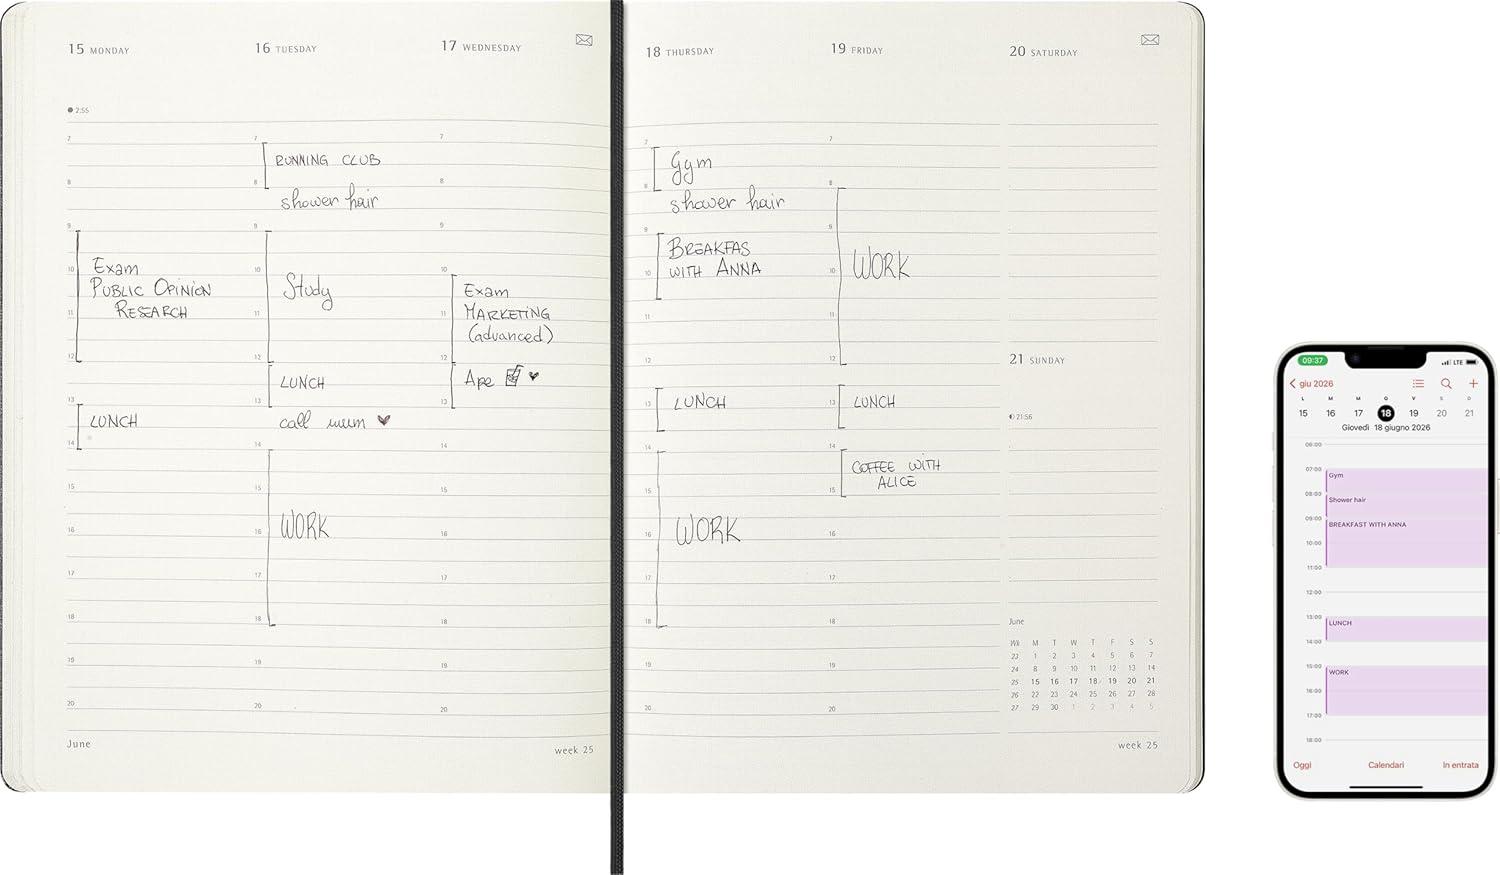 15 MONDAY
2:55
7
8
9
10
11
12
13
14
15
16
17
18
19
20
Exam
PUBLIC OPINION
RESEARCH
LUNCH
June
16 TUESDAY
7
8
9
10
11
12
14
15
16
17
18
19
20
RUNNING CLUB
shower hair
Study
LUNCH
call mum
WORK
17 WEDNESDAY
7
8
9
10
11
12
13
14
15
16
17
18
19
20
Exam
MARKETING
(advanced)
Ape
week 25
18 THURSDAY
7
8
9
10
11
12
13
14
15
16
17
18
19
20
Gym
shower hair
BREAKFAS
WITH ANNA
LUNCH
WORK
19 FRIDAY
7
8
9
10
11
12
13
14
15
16
17
18
19
20
WORK
LUNCH
COFFEE WITH
ALICE
20 SATURDAY
21 SUNDAY
21:56
June
Wk M T W T F S S
23 1 2 3 4 5 6 7
24 8 9 10 11 12 13 14
25 15 16 17 18 19 20 21
26 22 23 24 25 26 27 28
27 29 30 1 2 3 4 5
week 25
09:37
LTE
giu 2026
L M M G V S D
15 16 17 18 19 20 21
Giovedì 18 giugno 2026
06:00
07:00
Gym
08:00
Shower hair
09:00
BREAKFAST WITH ANNA
10:00
11:00
12:00
13:00
LUNCH
14:00
15:00
WORK
16:00
17:00
18:00
Oggi Calendari In entrata